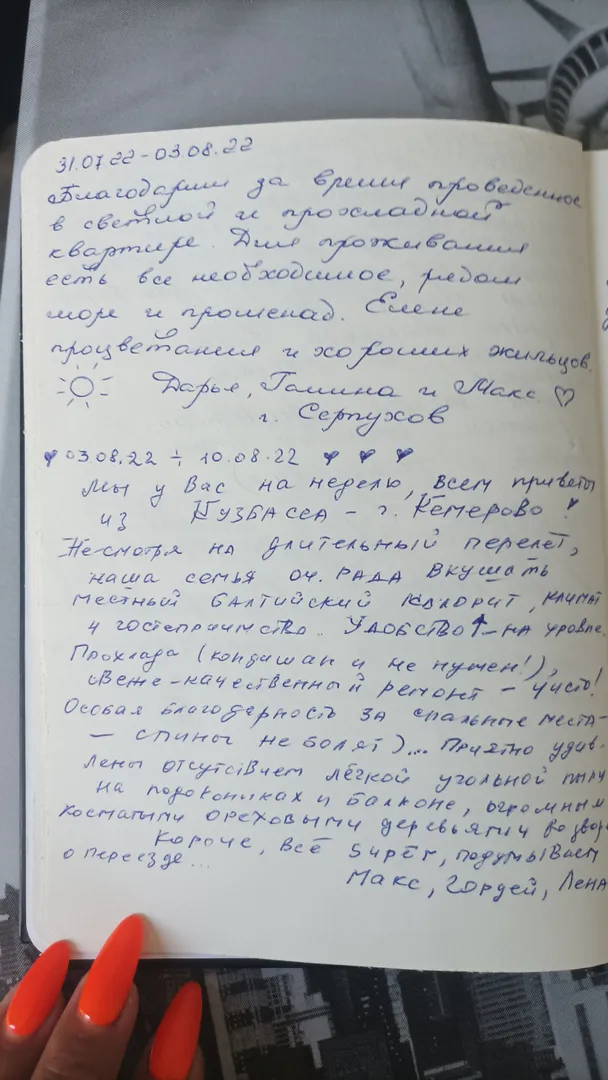 31.07.22-03.08.22
Благодарим за время проведенное
в светлой и прохладной
квартире. Для проживания
есть все необходимое, рядом
море и променад. Елене
процветания и хороших жильцов.
Дарья, Галина и Макс ♡
г. Серпухов
♥ 03.08.22 ÷ 10.08.22 ♥ ♥ ♥
Мы у Вас на неделю, всем приветы
из КУЗБАССА - г. Кемерово!
Несмотря на длительный перелет,
наша семья оч. рада вкушать
местный балтийский колорит, климат
и гостеприимство. Удобство↑ - на уровне.
Прохлада (кондишан и не нужен!),
свеже-качественный ремонт - чисто!
Особая благодарность за спальные места-
- спины не болят)... Приятно удив-
лены отсутствием лёгкой угольной пыли
на подоконниках и балконе, огромными
косматыми ореховыми деревьями во дворе
Короче, всё super, подумываем
о переезде...
Макс, Гордей, Лена